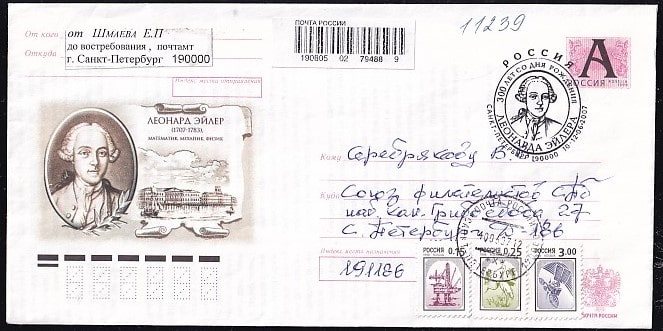 От кого от Шмаева Е.П
до востребования, почтамт
Откуда г. Санкт-Петербург 190000
Индекс места отправления
ПОЧТА РОССИИ
190005 02 79488 9
11239
РОССИЯ
300 ЛЕТ СО ДНЯ РОЖДЕНИЯ
ЛЕОНАРДА ЭЙЛЕРА
САНКТ-ПЕТЕРБУРГ 190000
А
РОССИЯ
ЛЕОНАРД ЭЙЛЕР
(1707-1783),
МАТЕМАТИК, МЕХАНИК, ФИЗИК
Кому Серебрякову В.
Куда Союз филателистов СПб
наб. кан. Грибоедова 27
С. Петербург 186
Индекс места назначения
191186
РОССИЯ 0.75
РОССИЯ 0.25
РОССИЯ 3.00
ПОЧТА РОССИИ